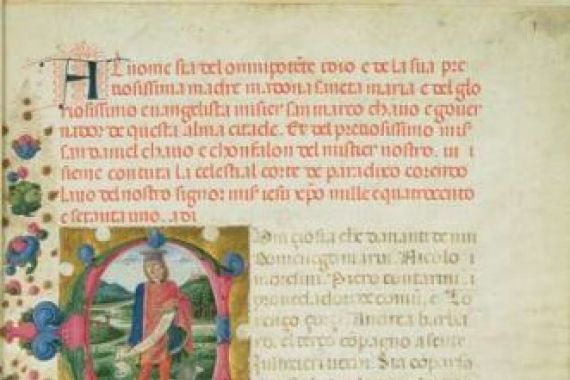 Al nome sia del omnipotēte idio e de la sua pre
tiosissima madre madona sancta maria e del glo
riosissimo euangelista misier san marco chauo e gouer
nador de questa alma citade. Et del pretiosissimo misˀ
san daniel chauo e chonfalon del mistier nostro. in i
sieme con tuta la celestial corte de paradixo corendo
lano del nostro signor misˀ iesu xp̄o mille e quatrocento
e setanta uno. a di
che dananti de nui
Domenego marin. Nicolo
Piero contarini.
prouedadori de comū. e Lo
Andrea barba
ro. el terço copagno a sente
Sia coparso